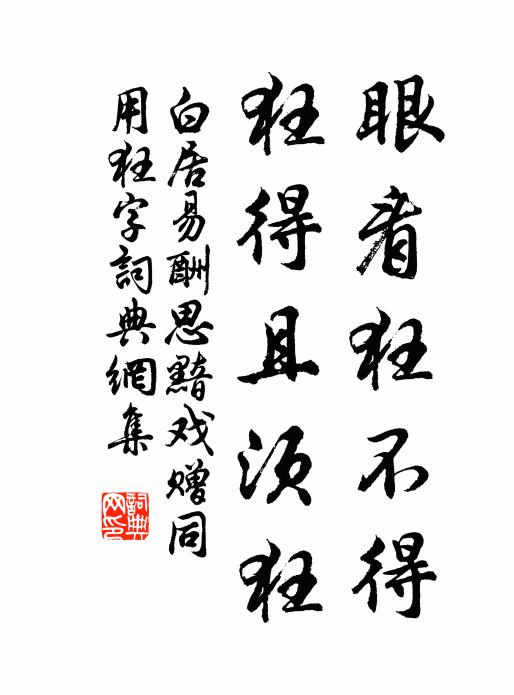 眼看狂不得
狂得且须狂
白居易酬思黯戏赠同
用狂字詞典網集
詞典
网印